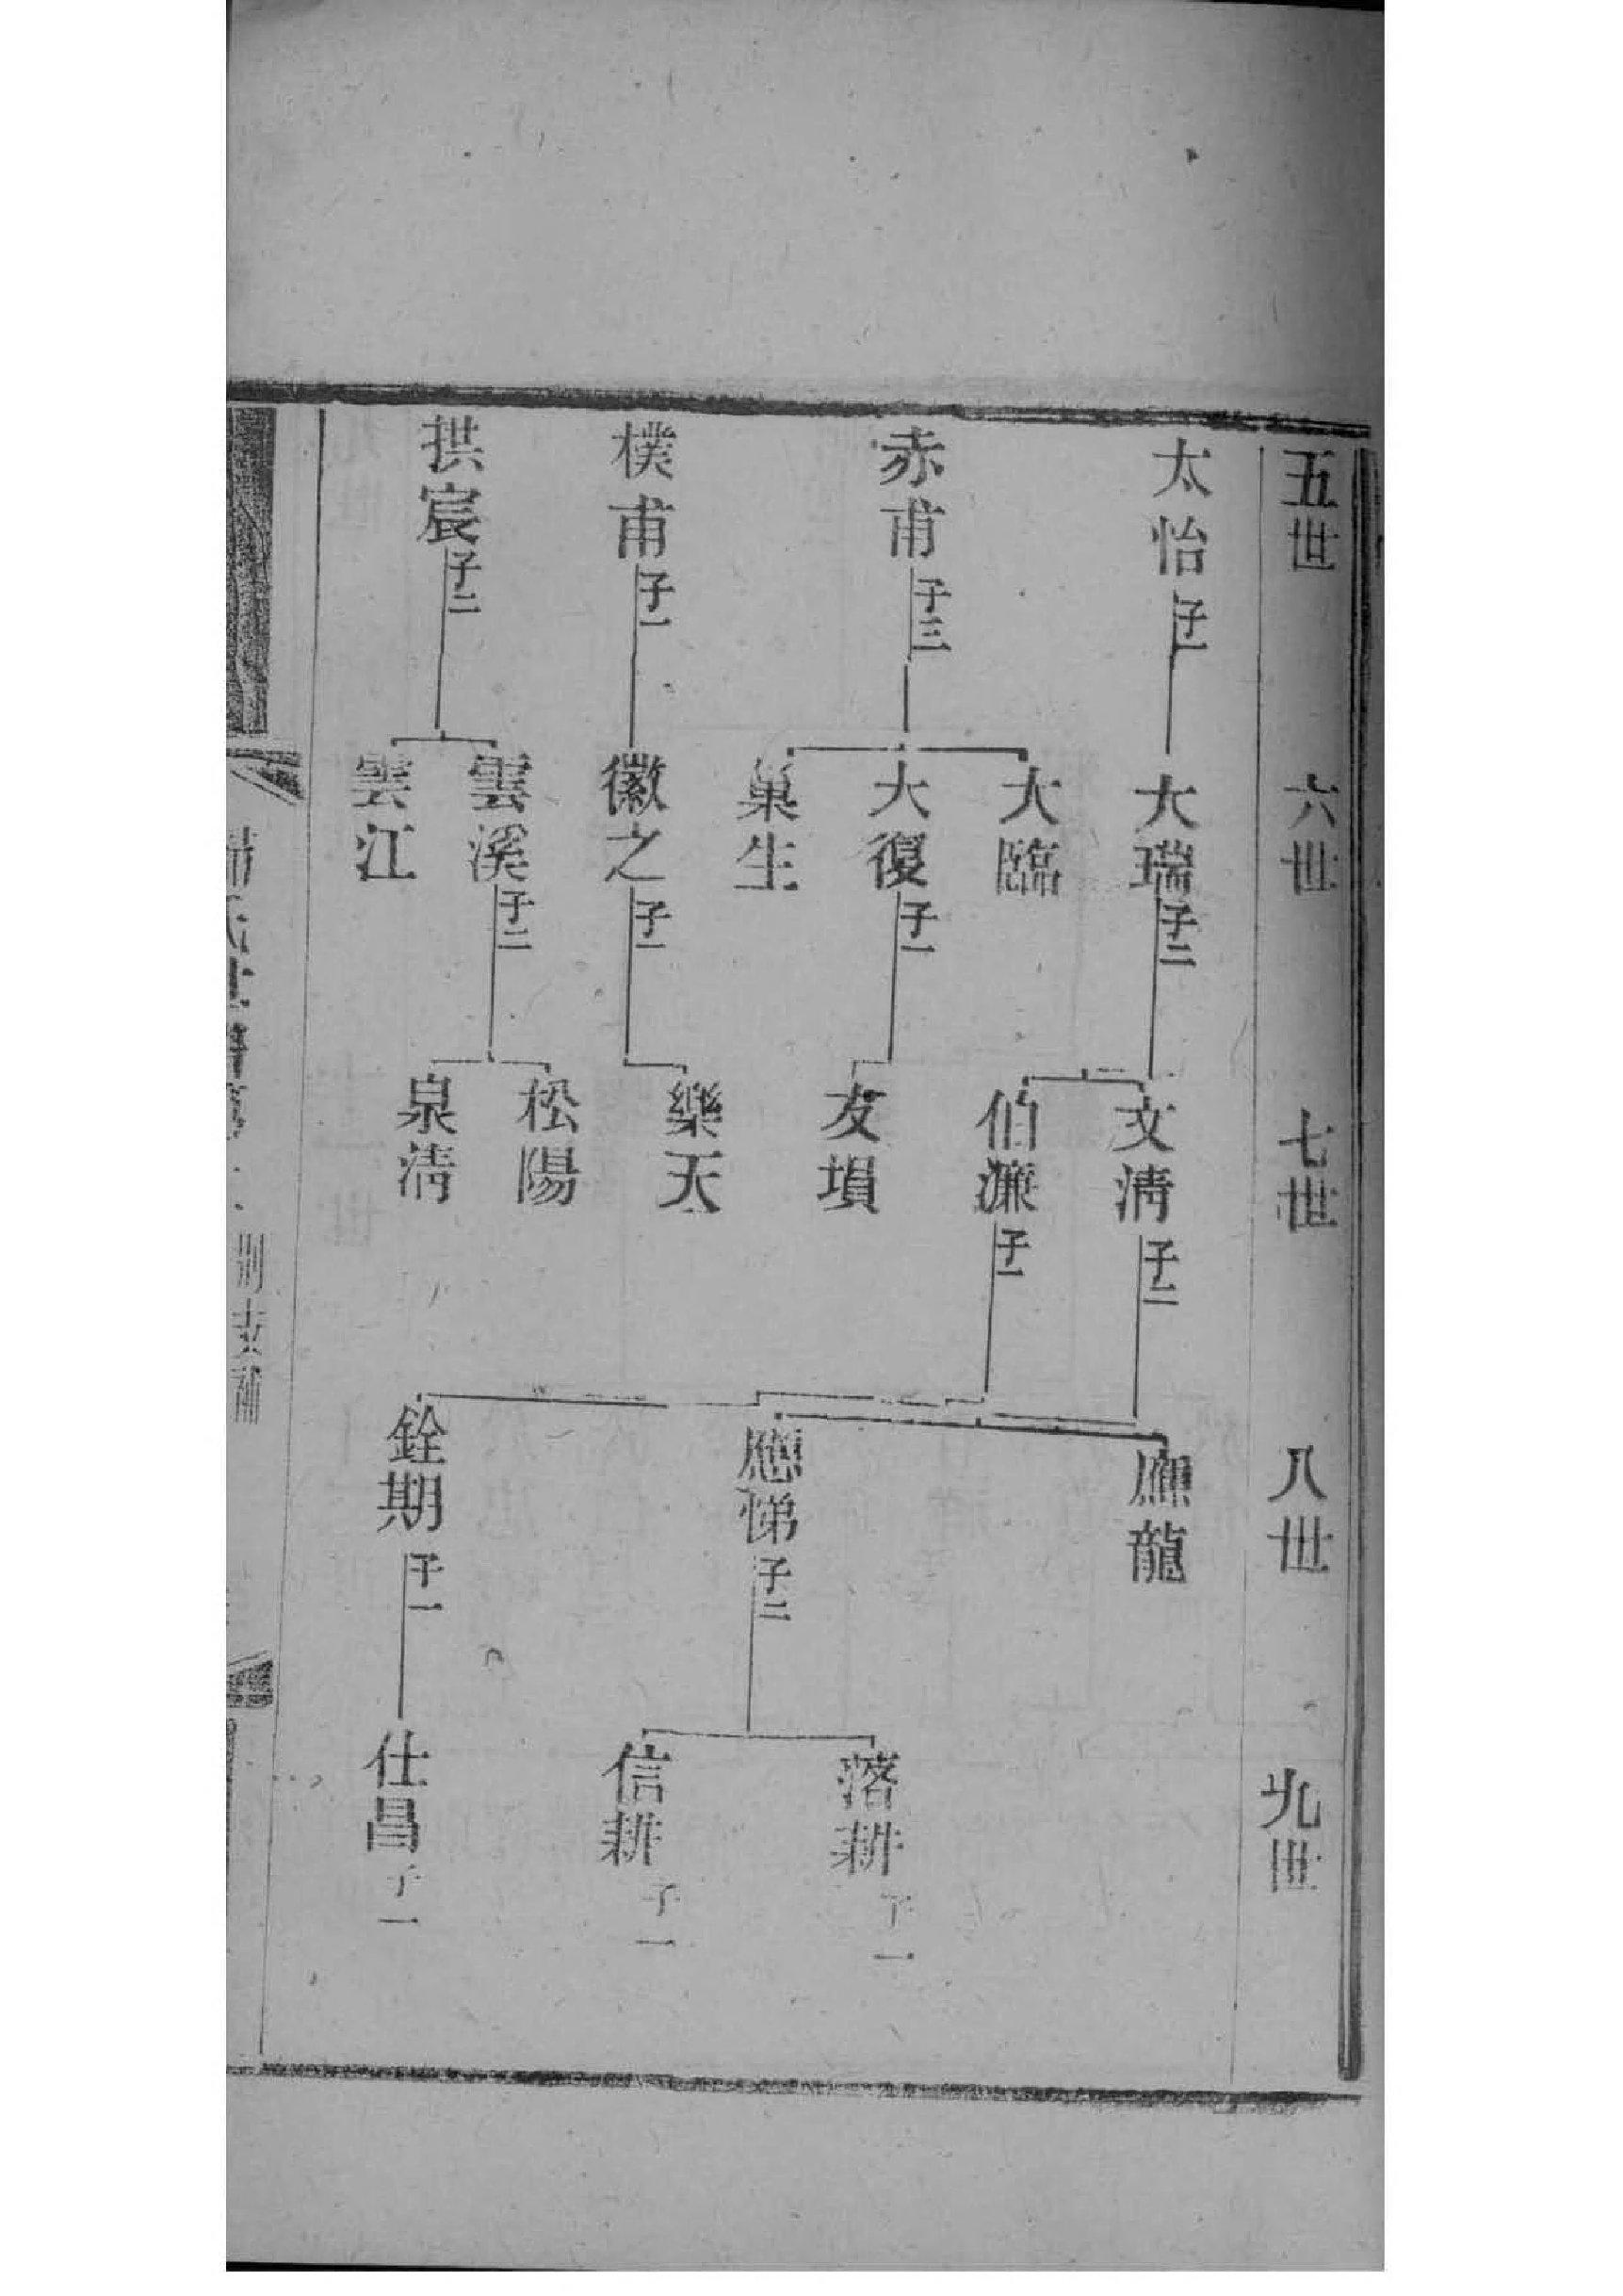 五世
六世
七世
八世
九世
太怡 子一
赤甫 子三
樸甫 子一
拱宸 子二
大瑞 子二
大臨
大復 子一
巢生
徽之 子一
雲溪 子二
雲江
文淸 子二
伯濂 子一
友塤
樂天
松陽
泉淸
應龍
應悌 子二
銓期 子一
落耕 子一
信耕 子一
仕昌 子一